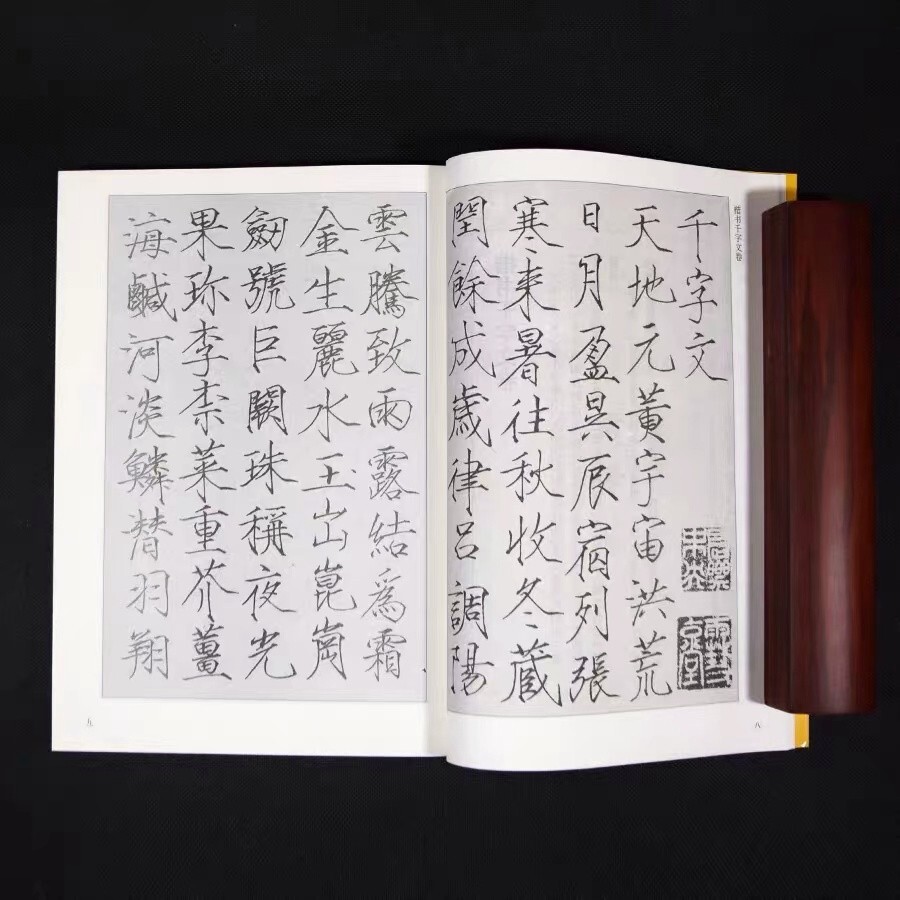 楷书千字文卷
千字文
天地元黃宇宙洪荒
日月盈昃辰宿列張
寒来暑往秋收冬蔵
閏餘成歲律呂調陽
八
雲騰致雨露結爲霜
金生麗水玉出崑崗
劔號巨闕珠稱夜光
果珎李柰菜重芥薑
海鹹河淡鱗潛羽翔
九